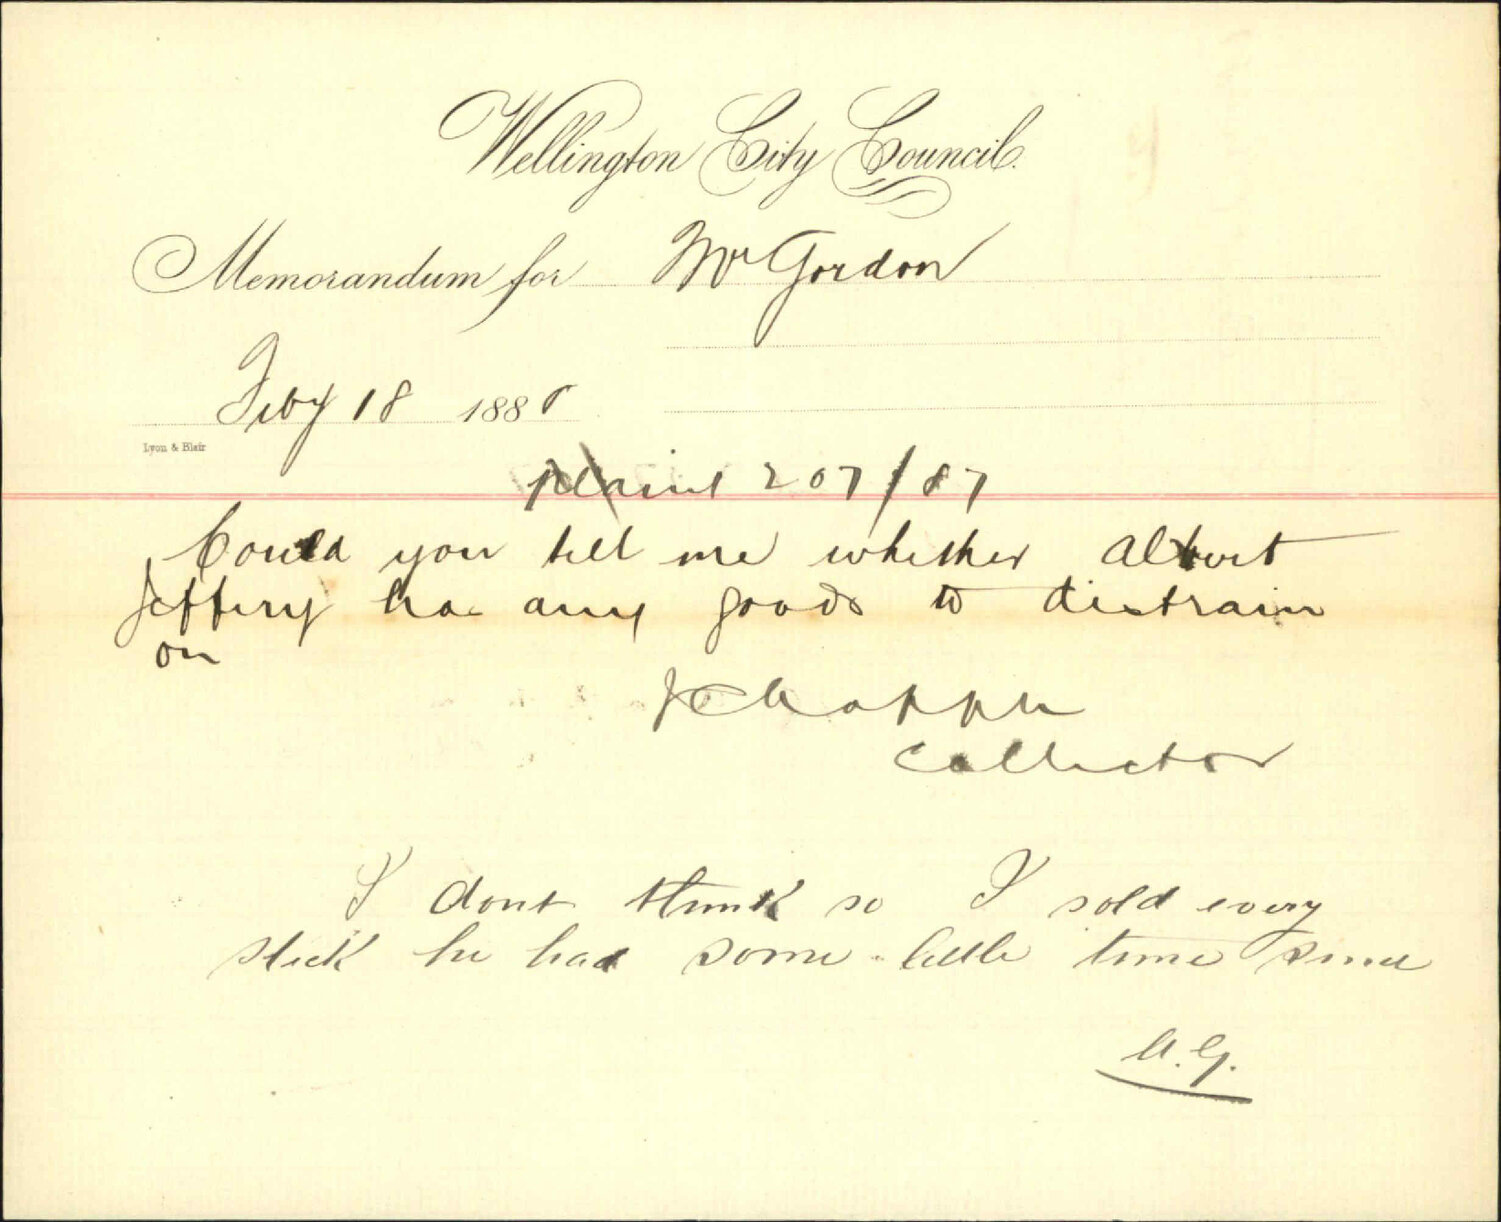 Wellington City Council.
Memorandum for Mr Gordon
Feby 18 188
Lyon & Blair
plaint 207/87
Could you tell me whether Albert
Jeffery has any goods to distrain
on
Collector
I dont think so I sold every
stick he had some little time since
A.G.